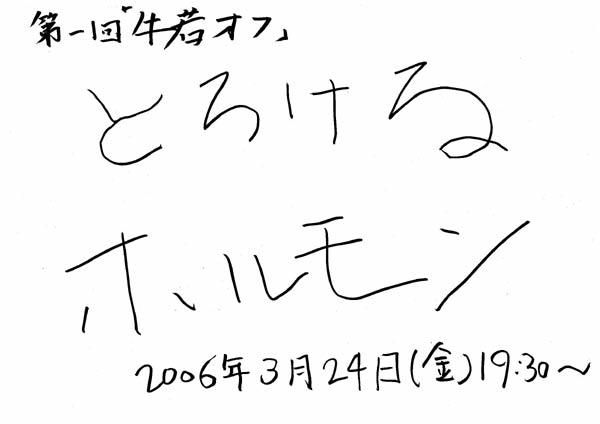 第一回「牛若オフ」
とろける
ホルモン
2006年3月24日(金)19:30〜